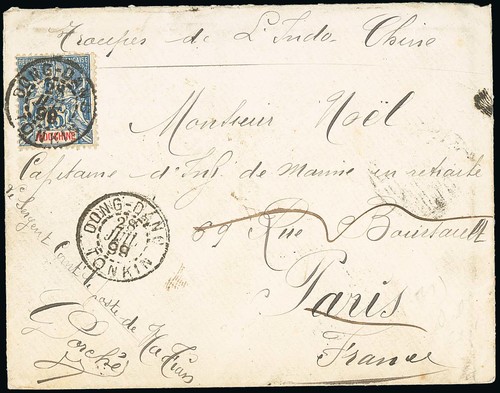 Troupes de L'Indo Chine
DONG-DANG
28
98
INDOCHINE
Monsieur Noël
Capitaine d'Inf de Marine en retraite
89 Rue Boursault
Paris
France
DONG-DANG
28
JUIL
98
TONKIN
Le Sergent
poste de Na Cham
Porché